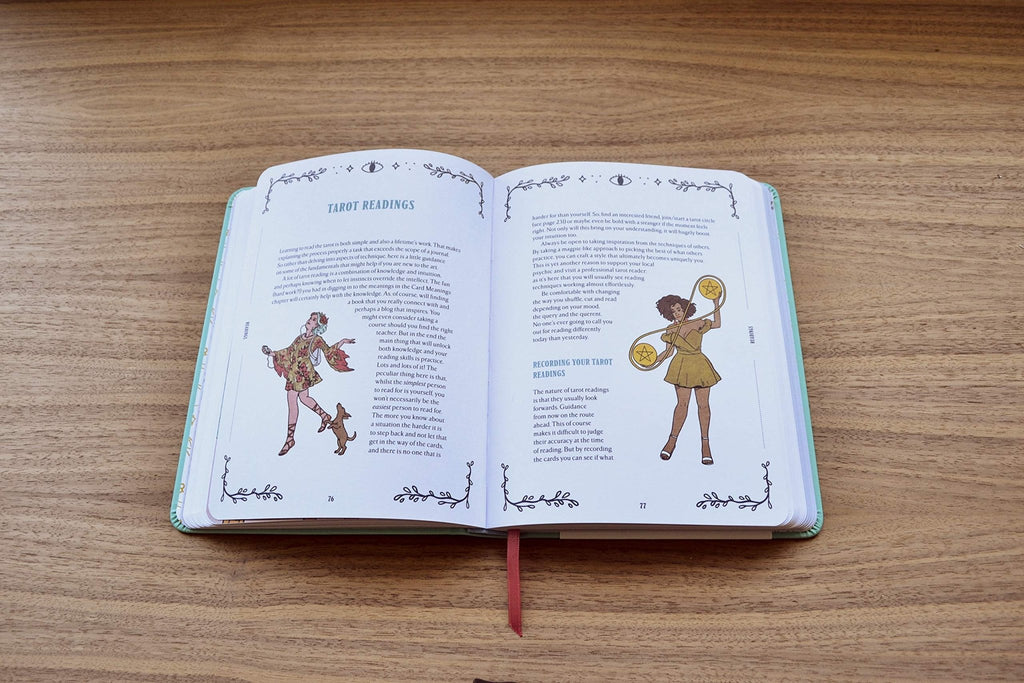 TAROT READINGS
Learning to read the tarot is both simple and also a lifetime's work. That makes
explaining the process properly a task that exceeds the scope of a journal.
So rather than delving into aspects of technique, here is a little guidance
on some of the fundamentals that might help if you are new to the art.
A lot of tarot reading is a combination of knowledge and intuition,
and perhaps knowing when to let instincts override the intellect. The fun
(hard work?!) you had in digging in to the meanings in the Card Meanings
chapter will certainly help with the knowledge. As, of course, will finding
a book that you really connect with and
perhaps a blog that inspires. You
might even consider taking a
course should you find the right
teacher. But in the end the
main thing that will unlock
both knowledge and your
reading skills is practice.
Lots and lots of it! The
peculiar thing here is that
whilst the simplest person
to read for is yourself, you
won't necessarily be the
easiest person to read for.
The more you know about
a situation the harder it is
to step back and not let that
get in the way of the cards,
and there is no one that is
76
harder for than yourself. So, find an interested friend, join/start a tarot circle
(see page 231) or maybe even be bold with a stranger if the moment feels
right. Not only will this bring on your understanding, it will hugely boost
your intuition too.
Always be open to taking inspiration from the techniques of others.
By taking a magpie-like approach to picking the best of what others
practice, you can craft a style that ultimately becomes uniquely you.
This is yet another reason to support your local
psychic and visit a professional tarot reader
as it's here that you will usually see reading
techniques working almost effortlessly.
Be comfortable with changing
the way you shuffle, cut and read
depending on your mood,
the query and the querent.
No one's ever going to call you
out for reading differently
today than yesterday.
RECORDING YOUR TAROT
READINGS
The nature of tarot readings
is that they usually look
forwards. Guidance
from now on the route
ahead. This of course
makes it difficult to judge
their accuracy at the time
of reading. But by recording
the cards you can see if what
READINGS
77